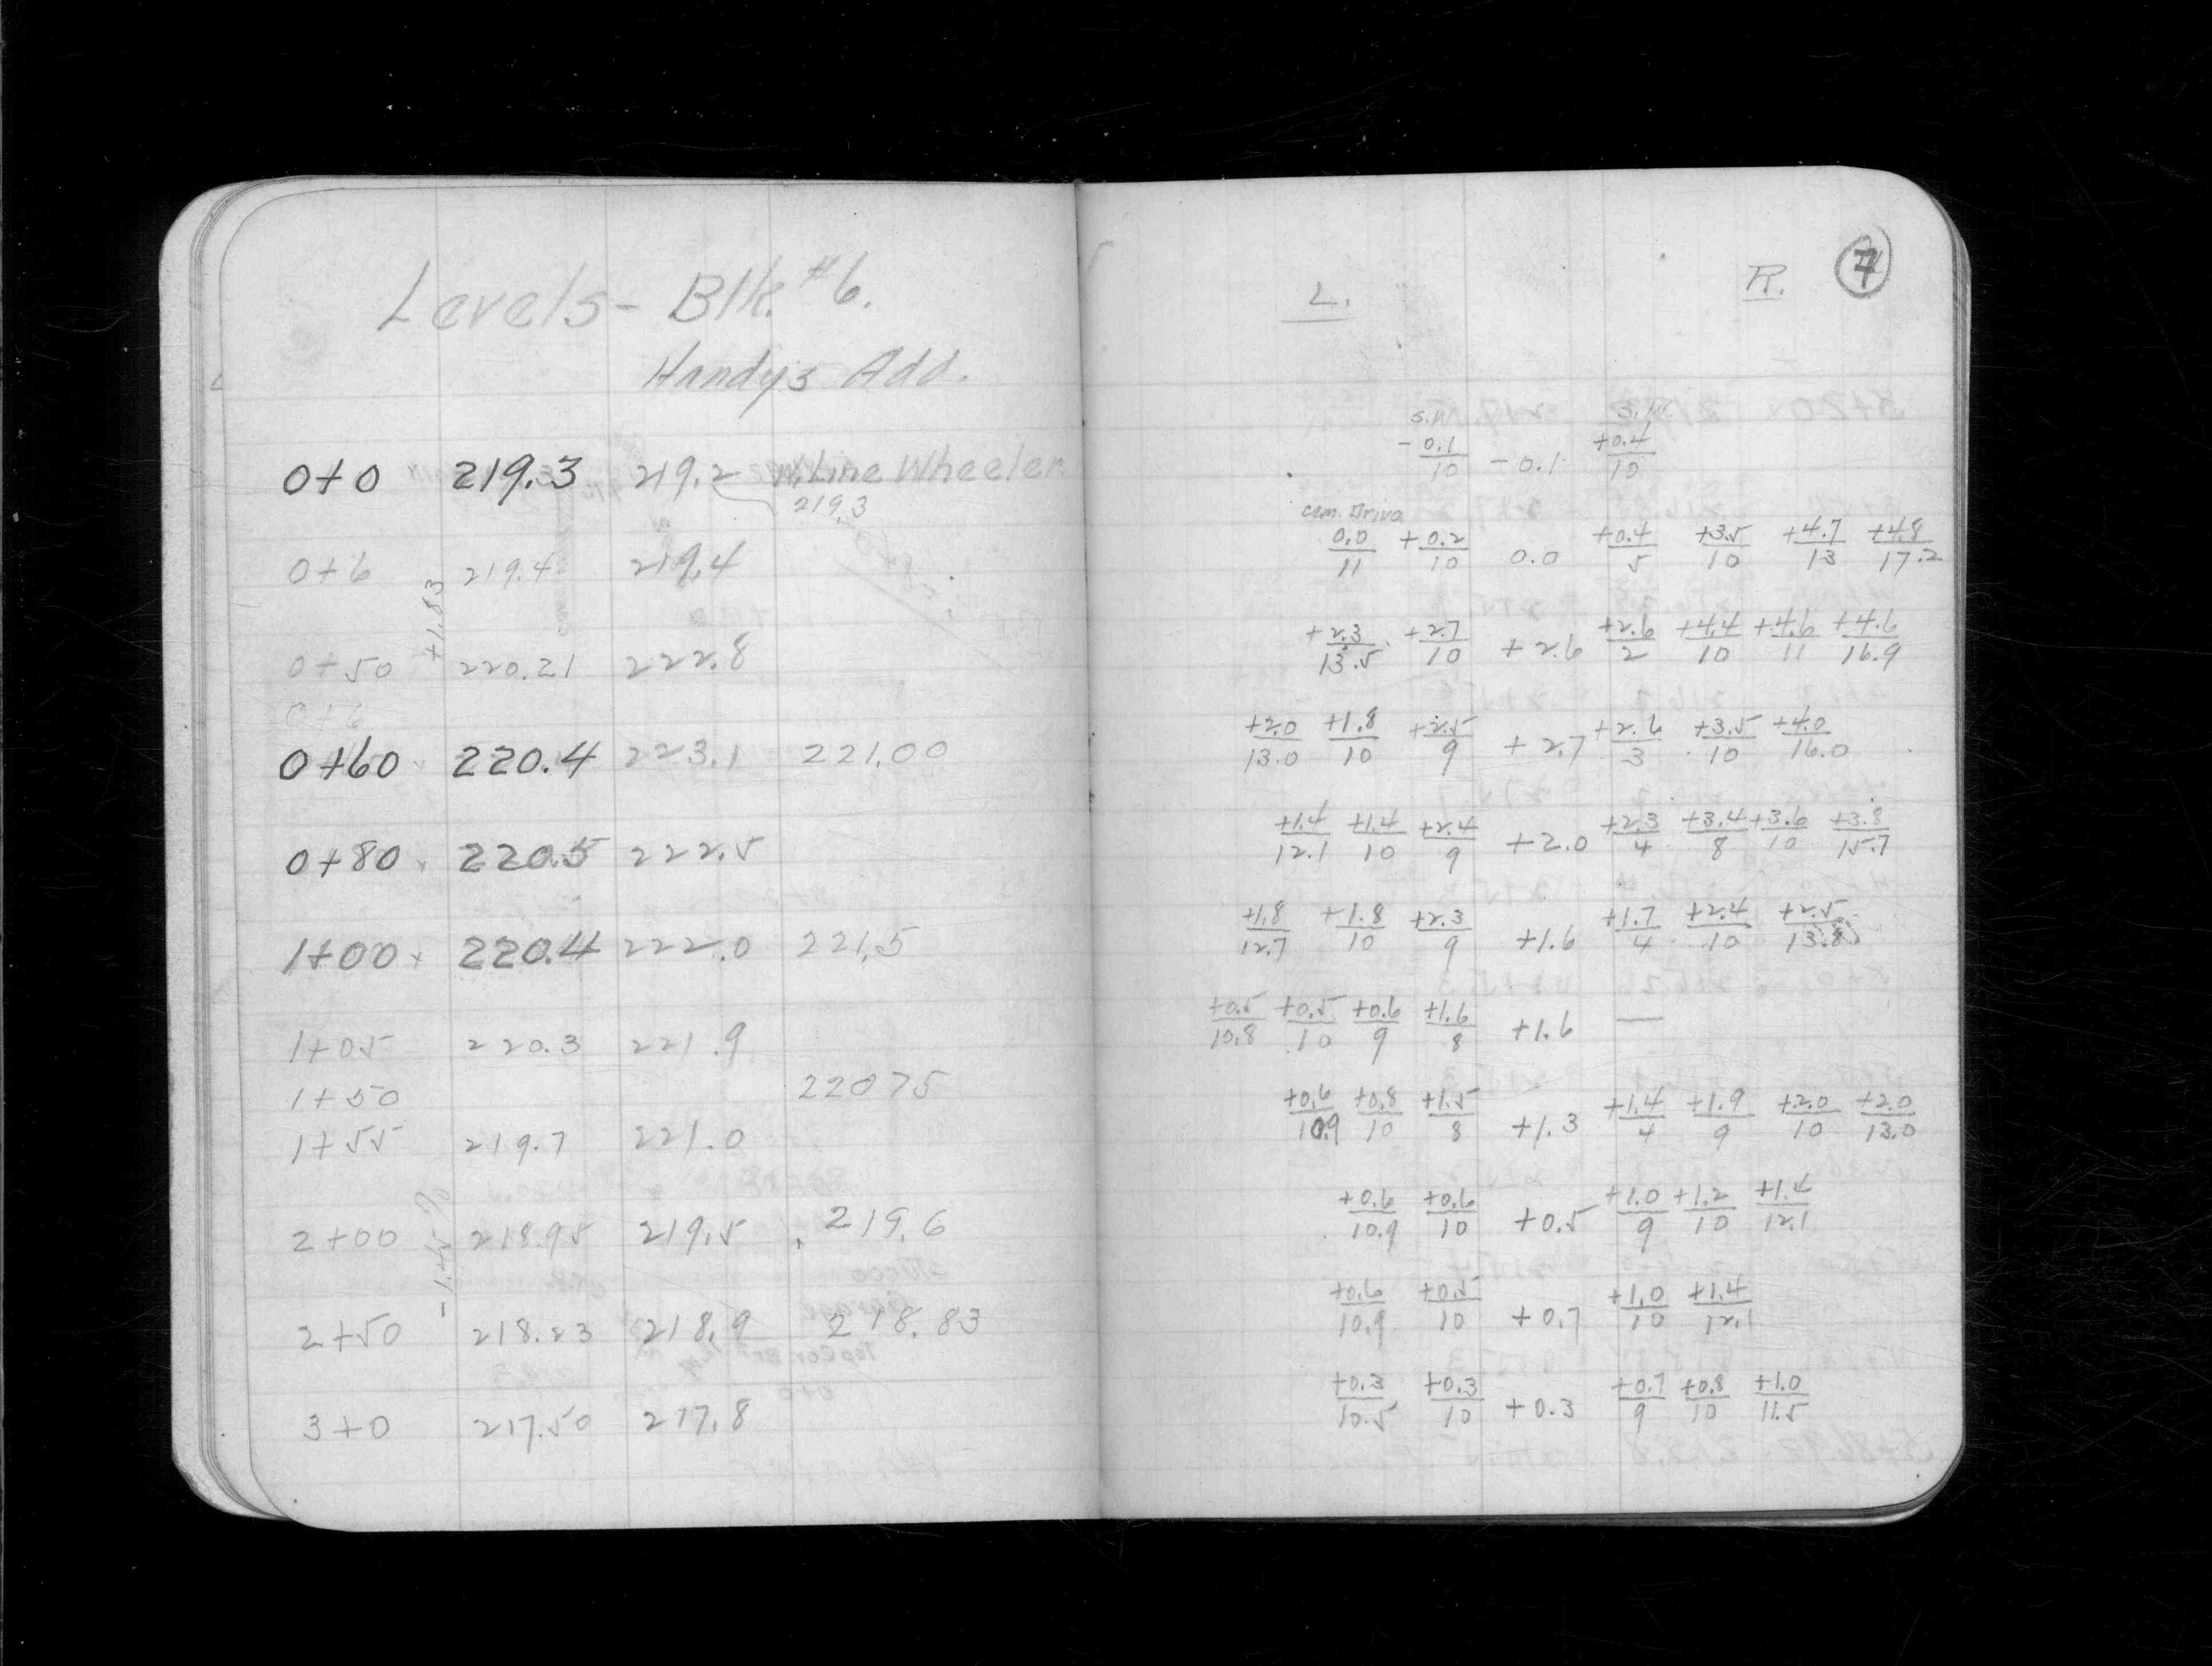 Levels - Blk. #6.
Handys Add.
0+0 219.3 219.2 W. Line Wheeler
219.3
0+6 219.4 219.4
+1.83
0+50 220.21 222.8
0+6
0+60 220.4 223.1 221.00
0+80 220.5 222.5
1+00 220.4 222.0 221.5
1+05 220.3 221.9
1+50 220 75
1+55 219.7 221.0
2+00 218.95 219.5 219.6
-1.45%
2+50 218.23 218.9 218.83
3+0 217.50 217.8
L. R. 7
S.W. S.W.
-0.1/10 -0.1 +0.4/10
cem. Drive
0.0/11 +0.2/10 0.0 +0.4/5 +3.5/10 +4.7/13 +4.8/17.2
+2.3/13.5 +2.7/10 +2.6 +2.6/2 +4.4/10 +4.6/11 +4.6/16.9
+2.0/13.0 +1.8/10 +2.5/9 +2.7 +2.6/3 +3.5/10 +4.0/16.0
+1.4/12.1 +1.4/10 +2.4/9 +2.0 +2.3/4 +3.4/8 +3.6/10 +3.8/15.7
+1.8/12.7 +1.8/10 +2.3/9 +1.6 +1.7/4 +2.4/10 +2.5/13.8
+0.5/10.8 +0.5/10 +0.6/9 +1.6/8 +1.6 —
+0.6/10.9 +0.8/10 +1.5/8 +1.3 +1.4/4 +1.9/9 +2.0/10 +2.0/13.0
+0.6/10.9 +0.6/10 +0.5 +1.0/9 +1.2/10 +1.4/12.1
+0.6/10.9 +0.5/10 +0.7 +1.0/10 +1.4/12.1
+0.3/10.5 +0.3/10 +0.3 +0.7/9 +0.8/10 +1.0/11.5